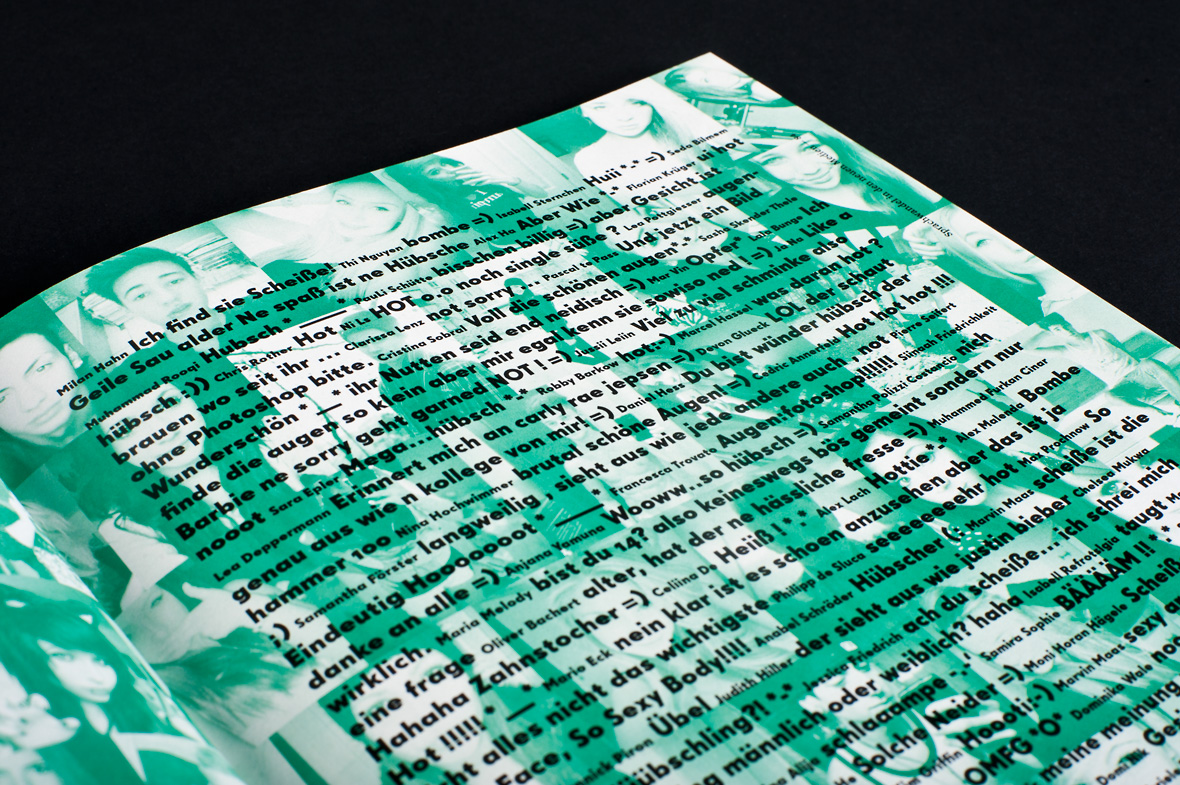 Huii *-* =) Seda Bilmem
bombe =) Isabell Sternchen
Milan Hahn Ich find sie Scheiße! Thi Nguyen
Aber Wie *-* Florian Krüger ui hot
Geile Sau alder Ne spaß ist ne Hübsche Alex Ha
bisschen billig =) aber Gesicht ist
Muhammed Rooq! Hubsch * — * Pauli Schütte
süße ? Lea Pottgiesser
hübsch :)) Chris Rother Hot Ni La HOT o_o noch single
Und jetzt ein Bild
brauen wo seit ihr ... Clariss Lenz not sorry
ohne Photoshop bitte. Cristina Sobral Voll die schönen augen *-* Sasha Skender Thele
Wunderschön * — * ihr Nutten seid end neidisch =) Mar Vin Opfe* Laja Bunge Ich
finde die augen so klein aber mir egal kenn sie sowiso ned ! =) Like a
Barbie ne sorry geht garned NOT ! =) Viel zu viel schminke also
nooot Sara Epler Mega...hübsch *.* Robby Barkow hot:) Marcel Hassan was daran hot?
Lea Deppermann Erinnert mich an carly rae jepsen =) Dvon Glueck LOL der schaut
genau aus wie'n kollege von mir! =) Daniel Hess Du bist wünder hübsch der
hammer 100 Nina Hochwimmer brutal schöne Augen =) Cedric Annewald Hot hot hot !!!
:) Samantha Förster langweilig , sieht aus wie jede andere auch.. not Pierre Sillet
Eindeutig Hoooooot * — * Francesca Trovato Augenfotoshop!!!!!
danke an alle =) Anjuna Yamuna Wooww..so hübsch =) Samantha Palizzi Costacio ich
wirklich. Maria Melody bist du 14? also keineswegs bös gemeint sondern nur
eine frage Oliver Bachert alter, hat der ne hässliche fresse .-) Muhammed Furkan Cinar
Hahaha Zahnstocher =) Celiina De Heiiß ! *.* Alex Loch Hottie *.* Alex Malende Bombe
Hot !!!!! * — * Marie Eck nein klar ist es schoen anzusehen aber das ist ja
alles nicht das wichtigste Philipp de Sluca seeeeeeeehr hot Max Prochnow So
Face, So Sexy Body!!!! Anabel Schröder Hübscher (: Marin Maas scheiße ist die
Übel Judith Hiller der sieht aus wie justin bieber Chelsea Mukwa
hübschling?! *-* Jessica Friedrich ach du scheiße... ich schrei mich
männlich oder weiblich? haha Isabell Refratalgia taugt
schlaaampe -.' Samira Sophie BÄÄÄÄM !! * —
Solche Neider =) Moni Horan Hägele Scheiß
Griffin Hooot!:-) Marvin Maas sexy
OMFG *O* Dominike Wale
meine meinung
sprachwandel in den neuen Medien